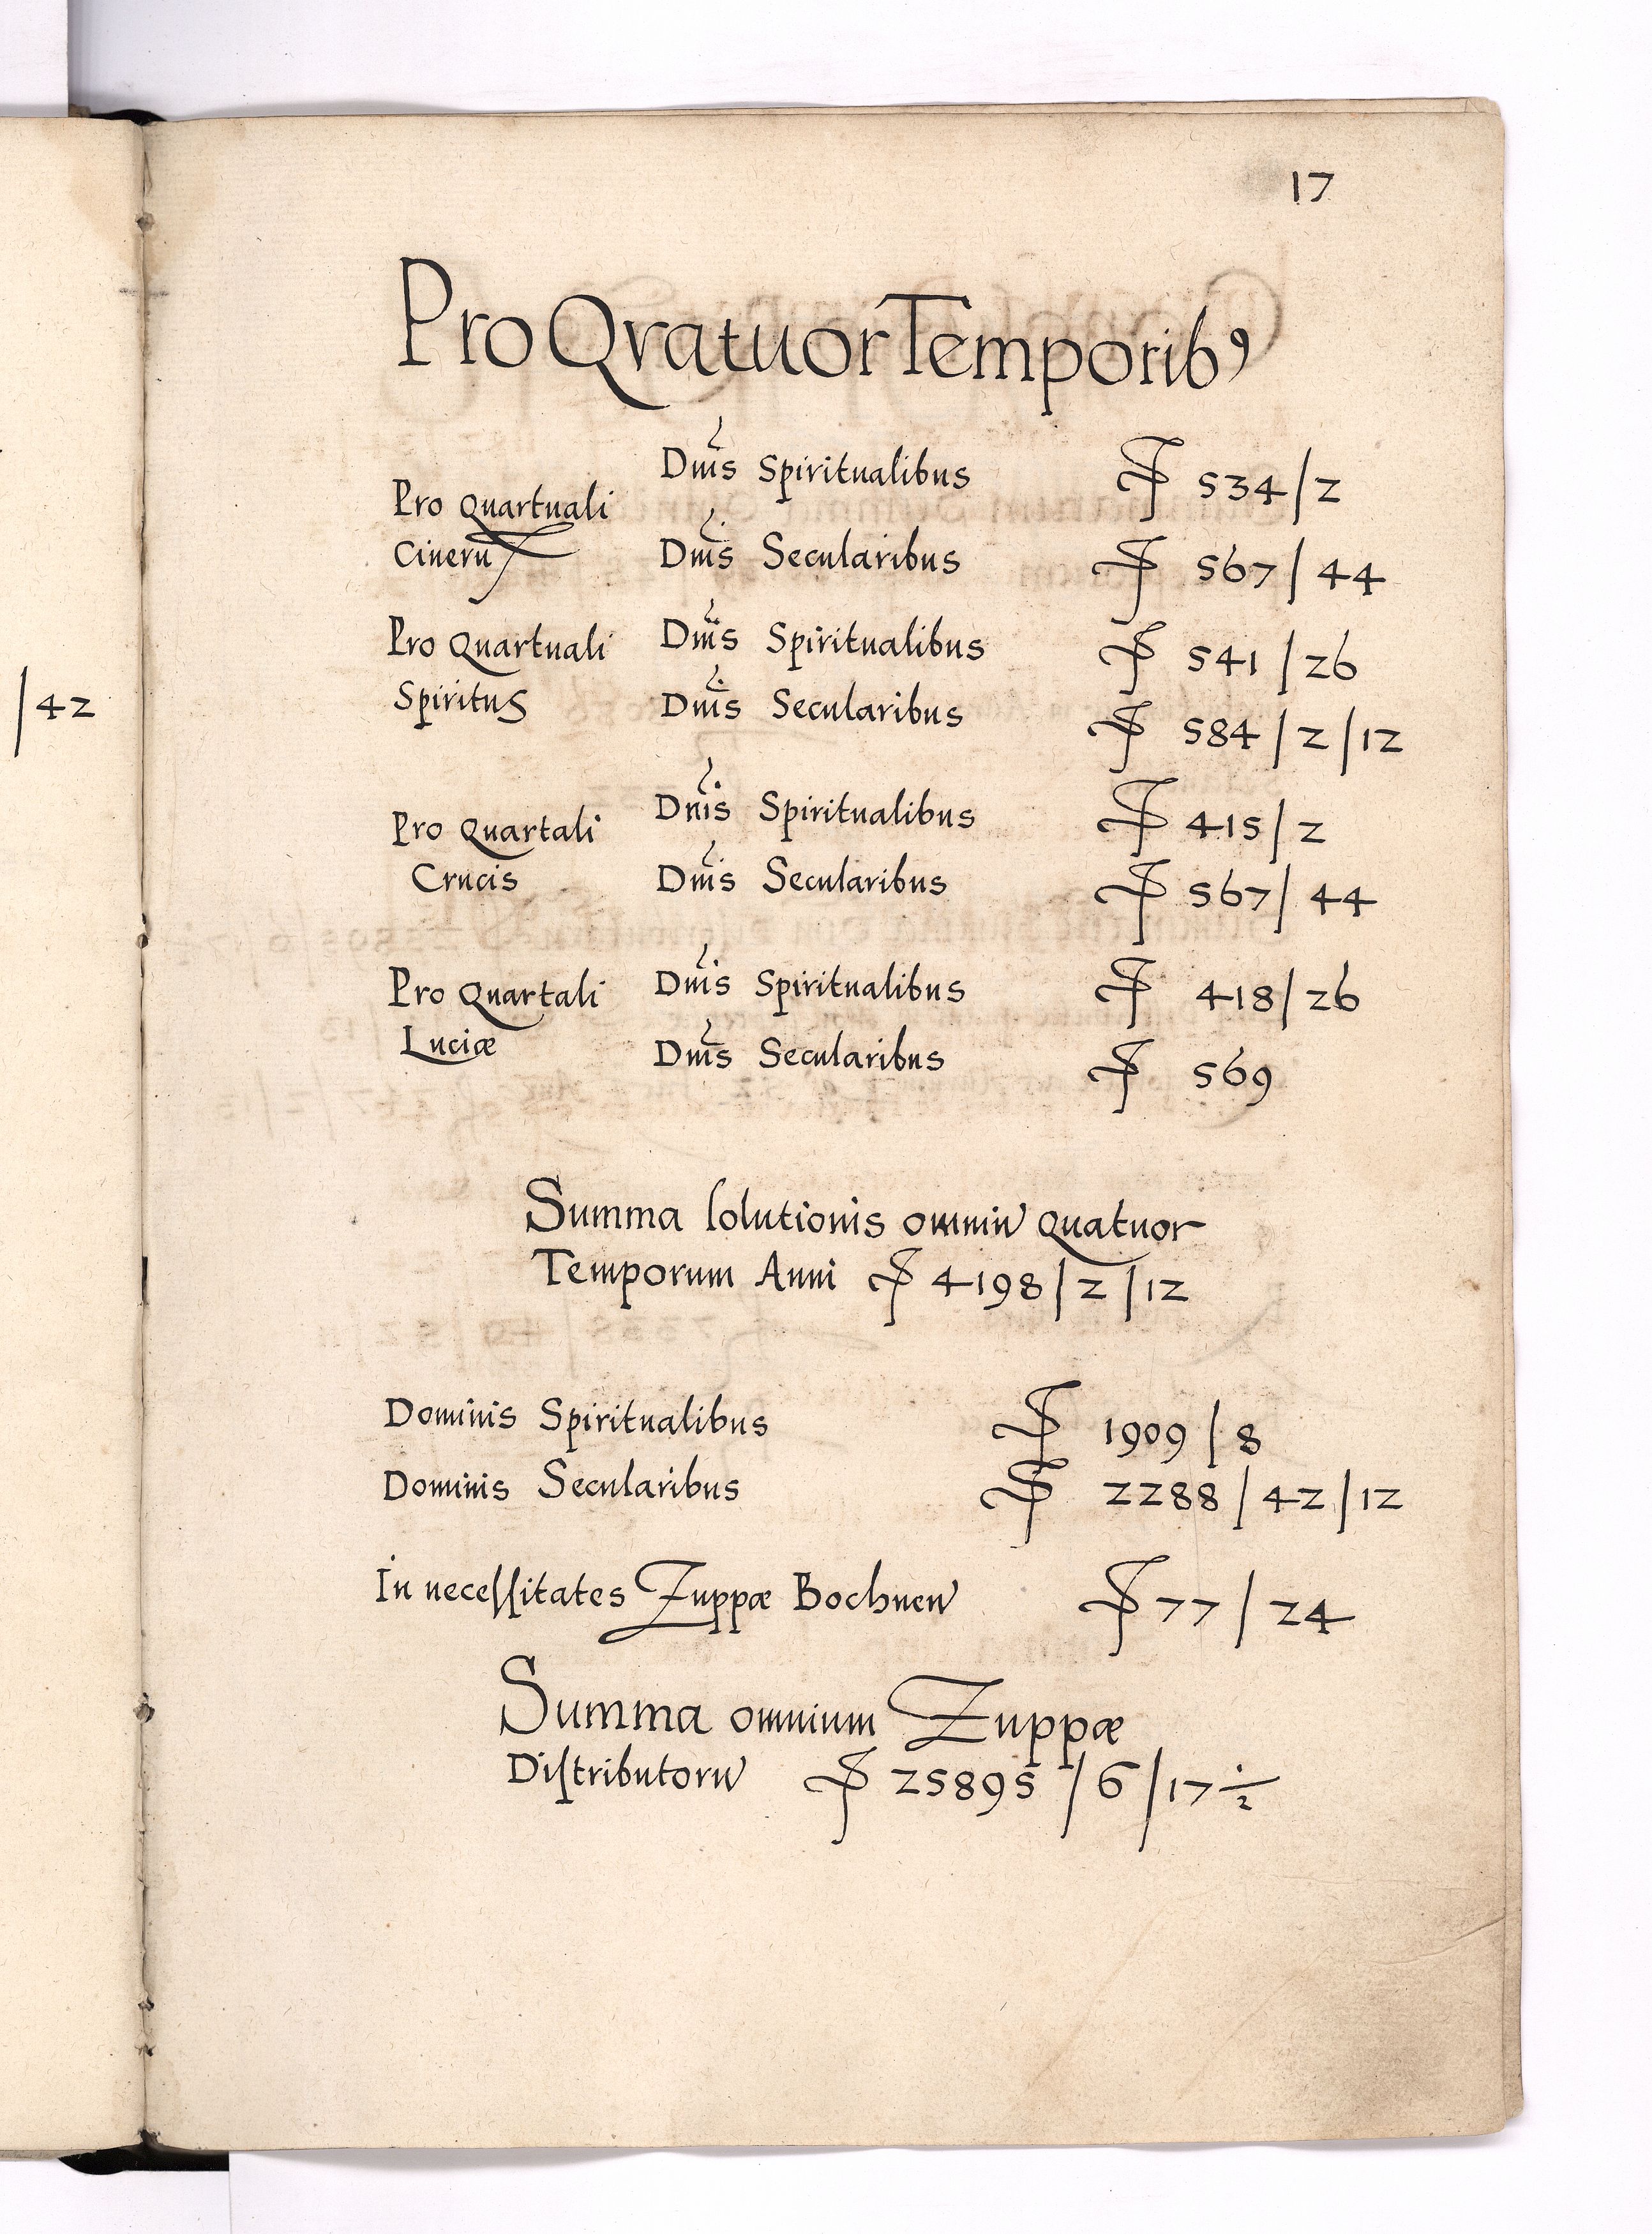 17
/42
Pro Qvatuor Temporibꝰ
Dnis Spiritualibus ƒ 534/2
Pro Quartuali
Cineru Dnis Secularibus ƒ 567/44
Pro Quartuali Dnis Spiritualibus ƒ 541/26
Spiritus Dnis Secularibus ƒ 584/2/12
Dnis Spiritualibus ƒ 415/2
Pro Quartali
Crucis Dnis Secularibus ƒ 567/44
Pro Quartali Dnis Spiritualibus ƒ 418/26
Luciæ Dnis Secularibus ƒ 569
Summa ſolutionis omniu quatuor
Temporum Anni ƒ 4198/2/12
Dominis Spiritualibus ƒ 1909/8
Dominis Secularibus ƒ 2288/42/12
In neceſſitates Zuppæ Bochnen ƒ 77/24
Summa omnium Zuppæ
Diſtributoru ƒ 25895/6/17 ½